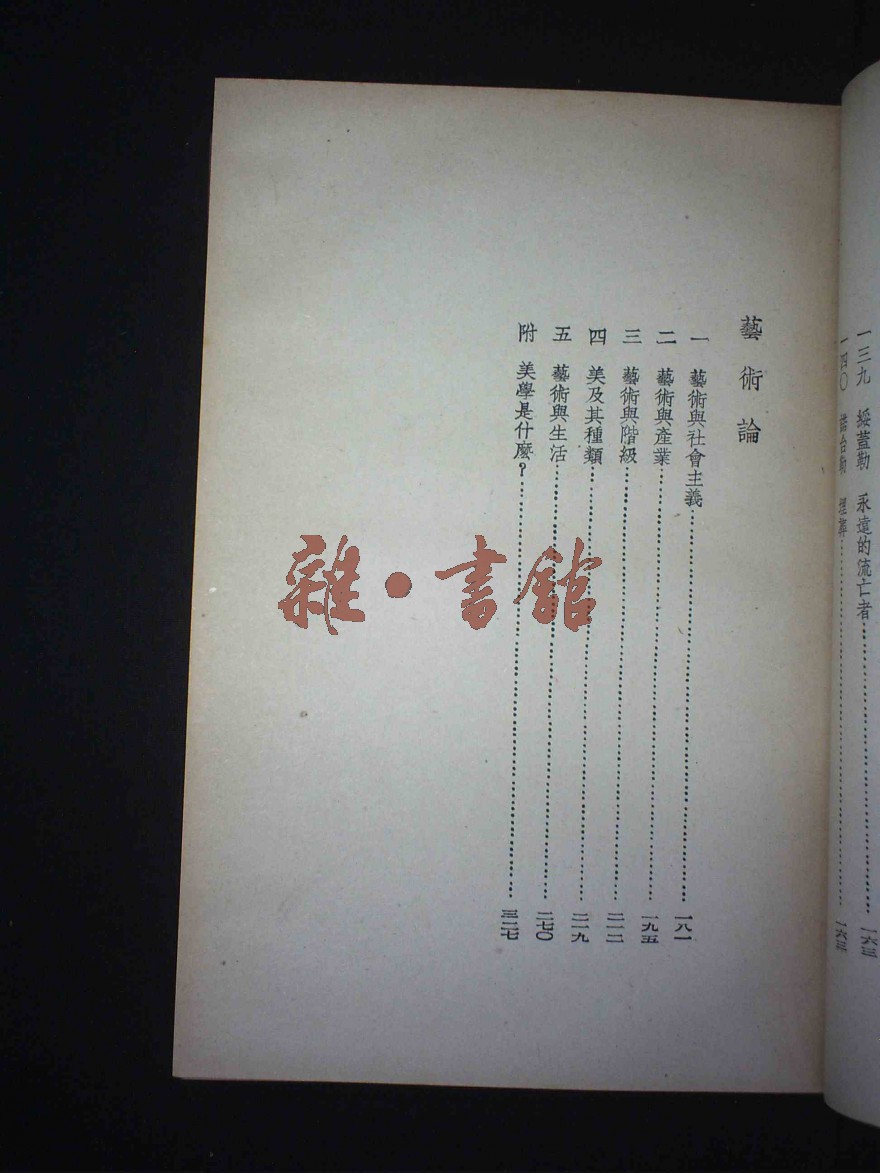 一三九　綏蓋勒　永遠的流亡者………一六三
一四〇　諾合勒　埋葬………一六三
藝術論
一　藝術與社會主義………一八一
二　藝術與產業………一九五
三　藝術與階級………二一二
四　美及其種類………二一九
五　藝術與生活………二七〇
附　美學是什麼？………三二七
雜·書館